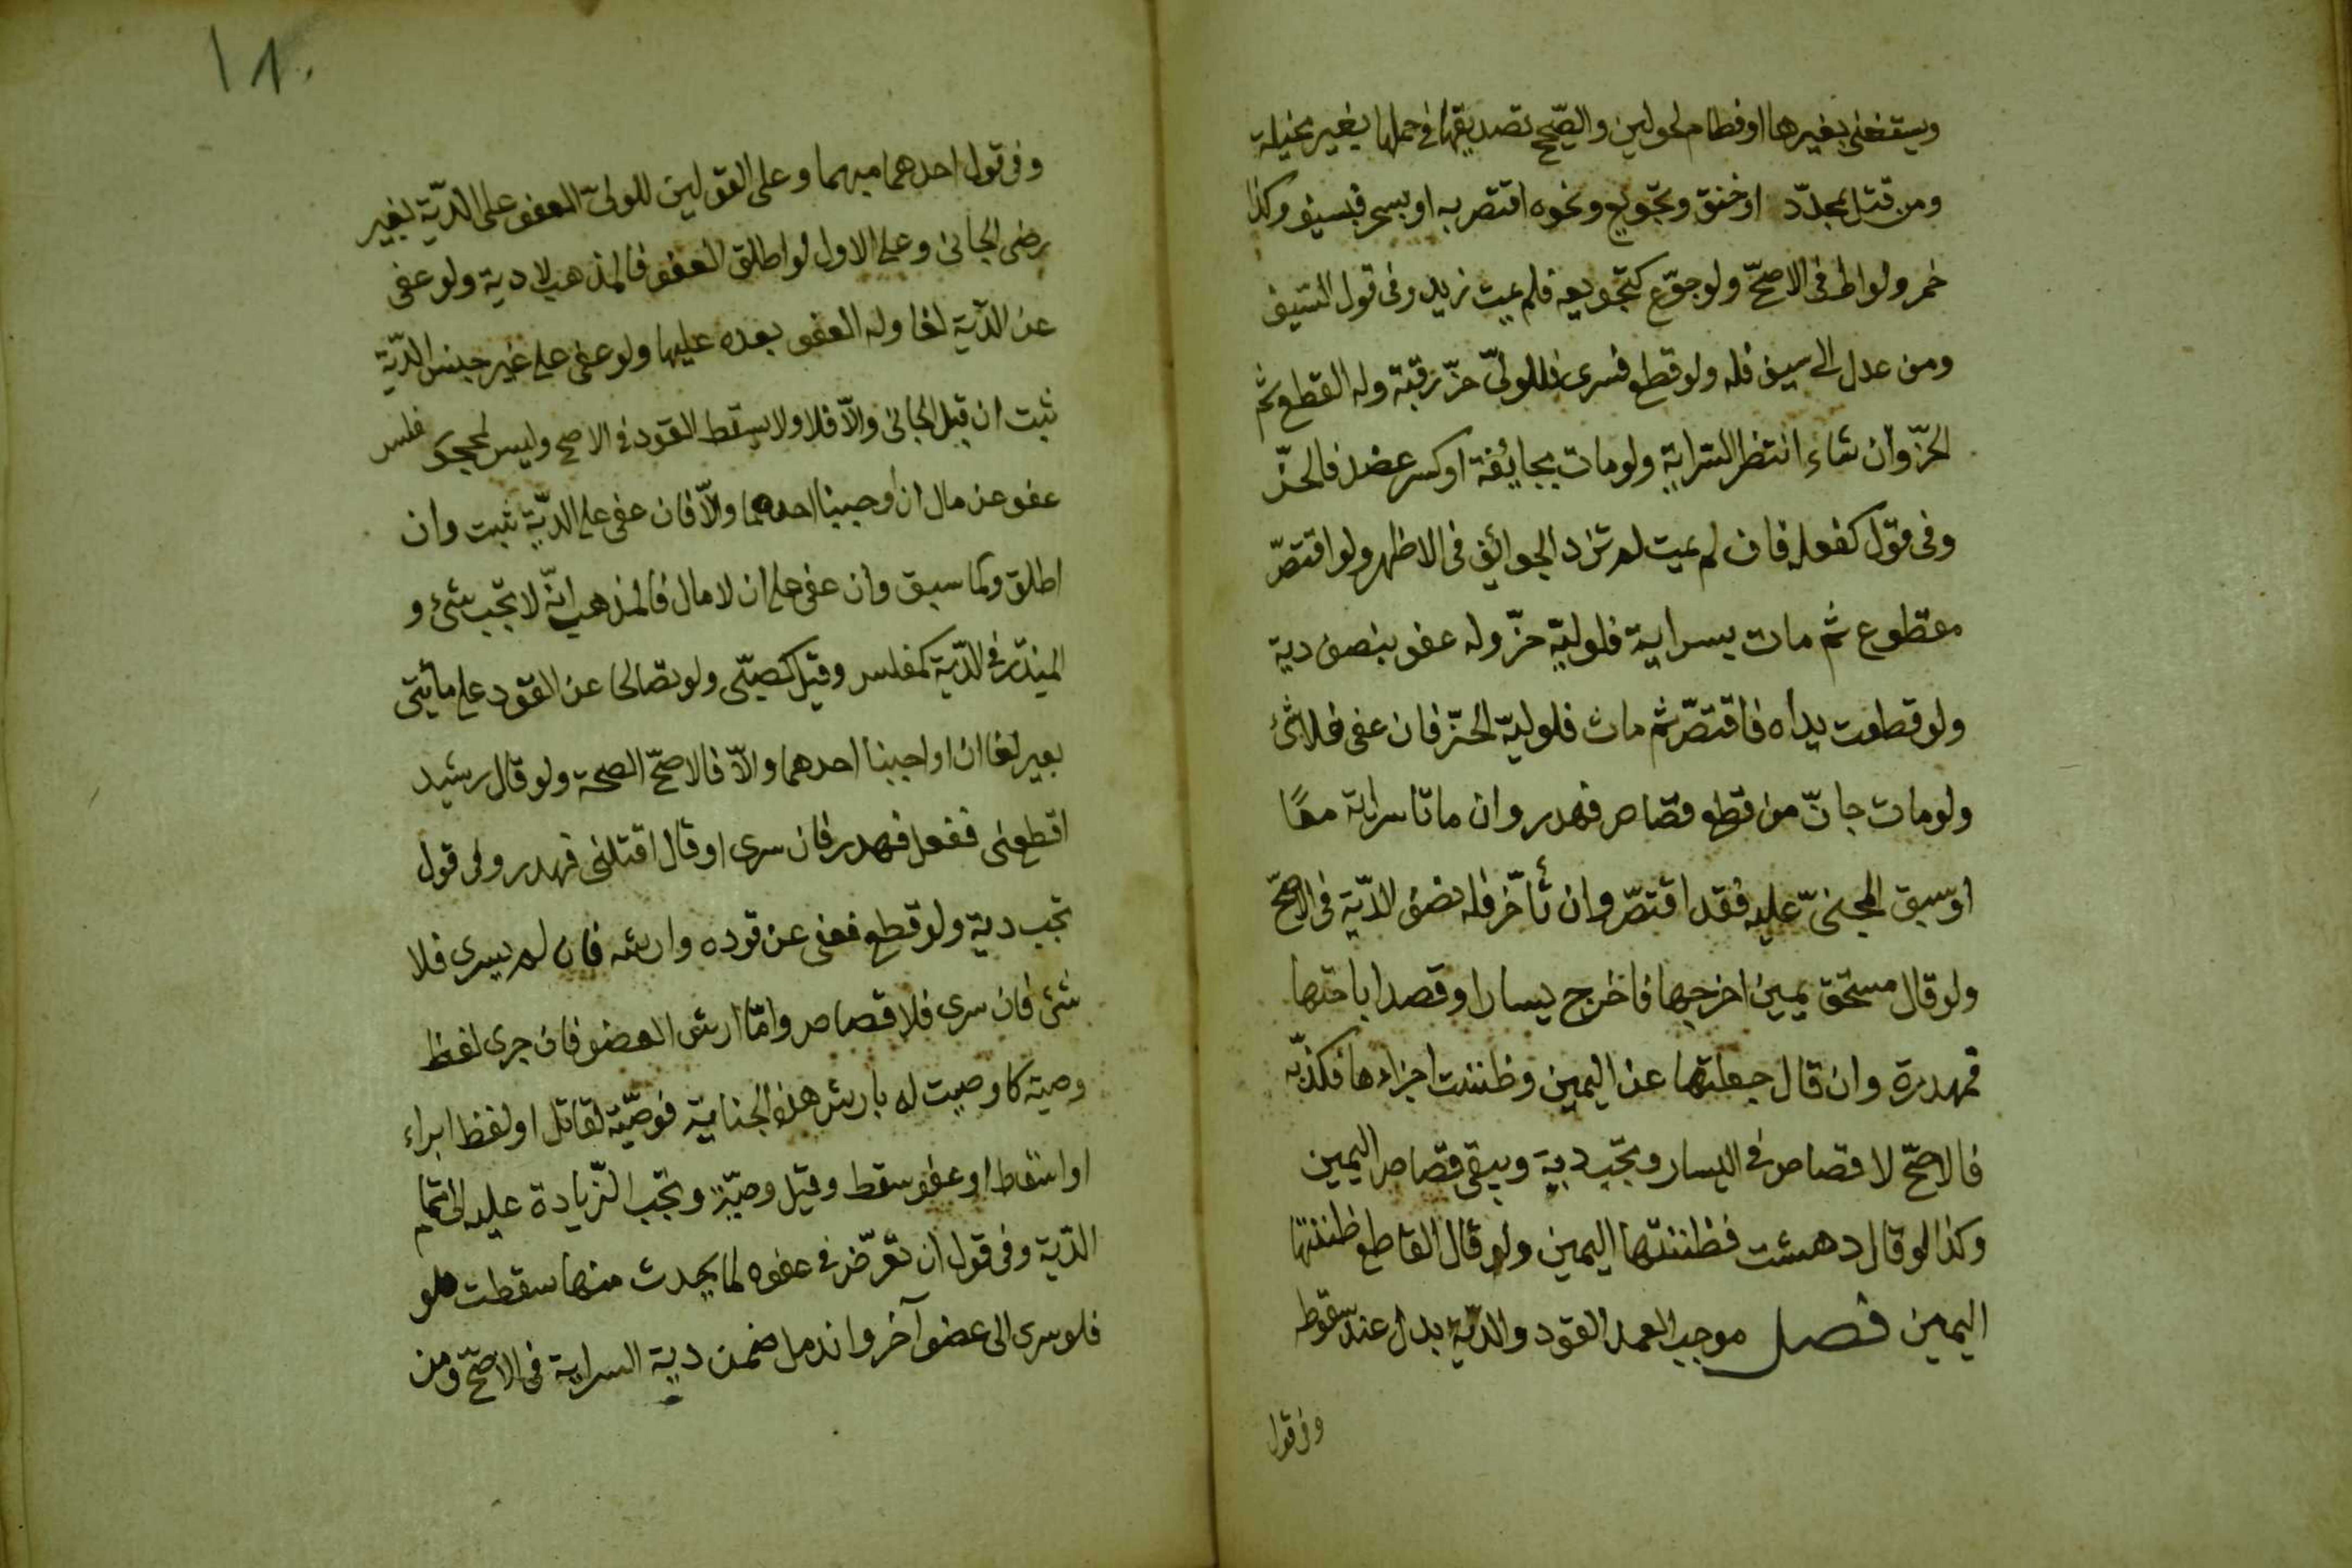 ويستغنى بغيرها او فطام لحولين والصّحيح تصديقها فى حملها بغير مخيلة
ومن قتل بمحدّد او خنق وتجويع ونحوه اقتصر به او بسحر فبسيف وكذا
خمر ولواط فى الاصحّ ولو جوّع كتجويعه فلم يمت زيد وفى قول السّيف
ومن عدل الى سيف فله ولو قطع فسرى فللولىّ حزّ رقبته وله القطع ثم
الحزّ وان شاء انتظر السّراية ولو مات بجايفة او كسر عضد فالحزّ
وفى قول كفعله فان لم يمت لم تزد الجوائف فى الاظهر ولو اقتصّ
مقطوع ثم مات بسراية فلوليّه حزّ وله عفو بنصف دية
ولو قطعت يداه فاقتصّ ثم مات فلوليّه الحزّ فان عفى فلا شئ
ولو مات جانّ من قطع قصاص فهدر وان ماتا سراية معًا
او سبق المجنىّ عليه فقد اقتصّ وان تأخّر فله نصف الدّية فى الاصحّ
ولو قال مستحق يمين اخرجها فاخرج يسارا وقصد اباحتها
فمهدرة وان قال جعلتها عن اليمين وظننت اجزاءها فكذّبه
فالاصحّ لا قصاص فى اليسار وتجب دية ويبقى قصاص اليمين
وكذا لو قال دهشت فظننتها اليمين ولو قال القاطع ظننتها
اليمين فصل موجب العمد القود والدّية بدل عند سقوطه
وفى قول
١٨٠
وفى قول احدهما مبهما وعلى القولين للولىّ العفو على الدّية بغير
رضى الجانى وعلى الاول لو اطلق العفو فالمذهب لا دية ولو عفى
عن الدّية لغا وله العفو بعده عليها ولو عفى على غير جنس الدّية
ثبت ان قبل الجانى والّا فلا ولا يسقط القود فى الاصح وليس لمحجور فلس
عفو عن مال ان أوجبنا احدهما والّا فان عفى على الدّية ثبت وان
اطلق وكما سبق وان عفى على ان لا مال فالمذهب انّه لا تجب شئ و
المبذّر فى الدّية كمفلس وقيل كصبّى ولو تصالحا عن القود على مائتى
بعير لغا ان اوجبنا احدهما والّا فالاصحّ الصحة ولو قال رشيد
اقطعنى ففعل فهدر فان سرى او قال اقتلنى فهدر وفى قول
تجب دية ولو قطع فعفى عن قوده وارشه فان لم يسرى فلا
شئ فان سرى فلا قصاص وامّا ارش العضو فان جرى لفظ
وصية كاوصيت له بارش هذه الجناية فوصّية لقاتل او لفظ ابراء
او اسقاط او عفو سقط وقيل وصيّة وتجب الزّيادة عليه الى تمام
الدّية وفى قول ان تعرّض فى عفوه لما يحدث منها سقطت فلو
فلو سرى الى عضو آخر واندمل ضمن دية السراية فى الاصحّ ومن